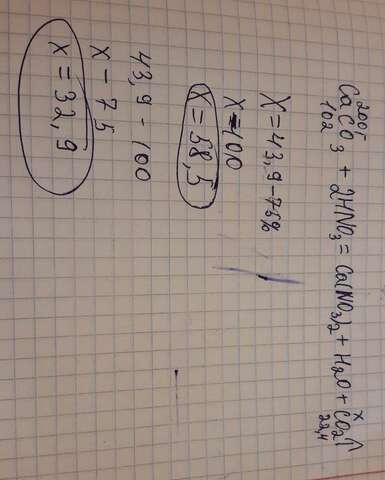 200г x
CaCO₃ + 2HNO₃ = Ca(NO₃)₂ + H₂O + CO₂↑
102 22,4
X = 43,9 - 75%
X - 100
X = 58,5
43,9 - 100
X - 75
X = 32,9